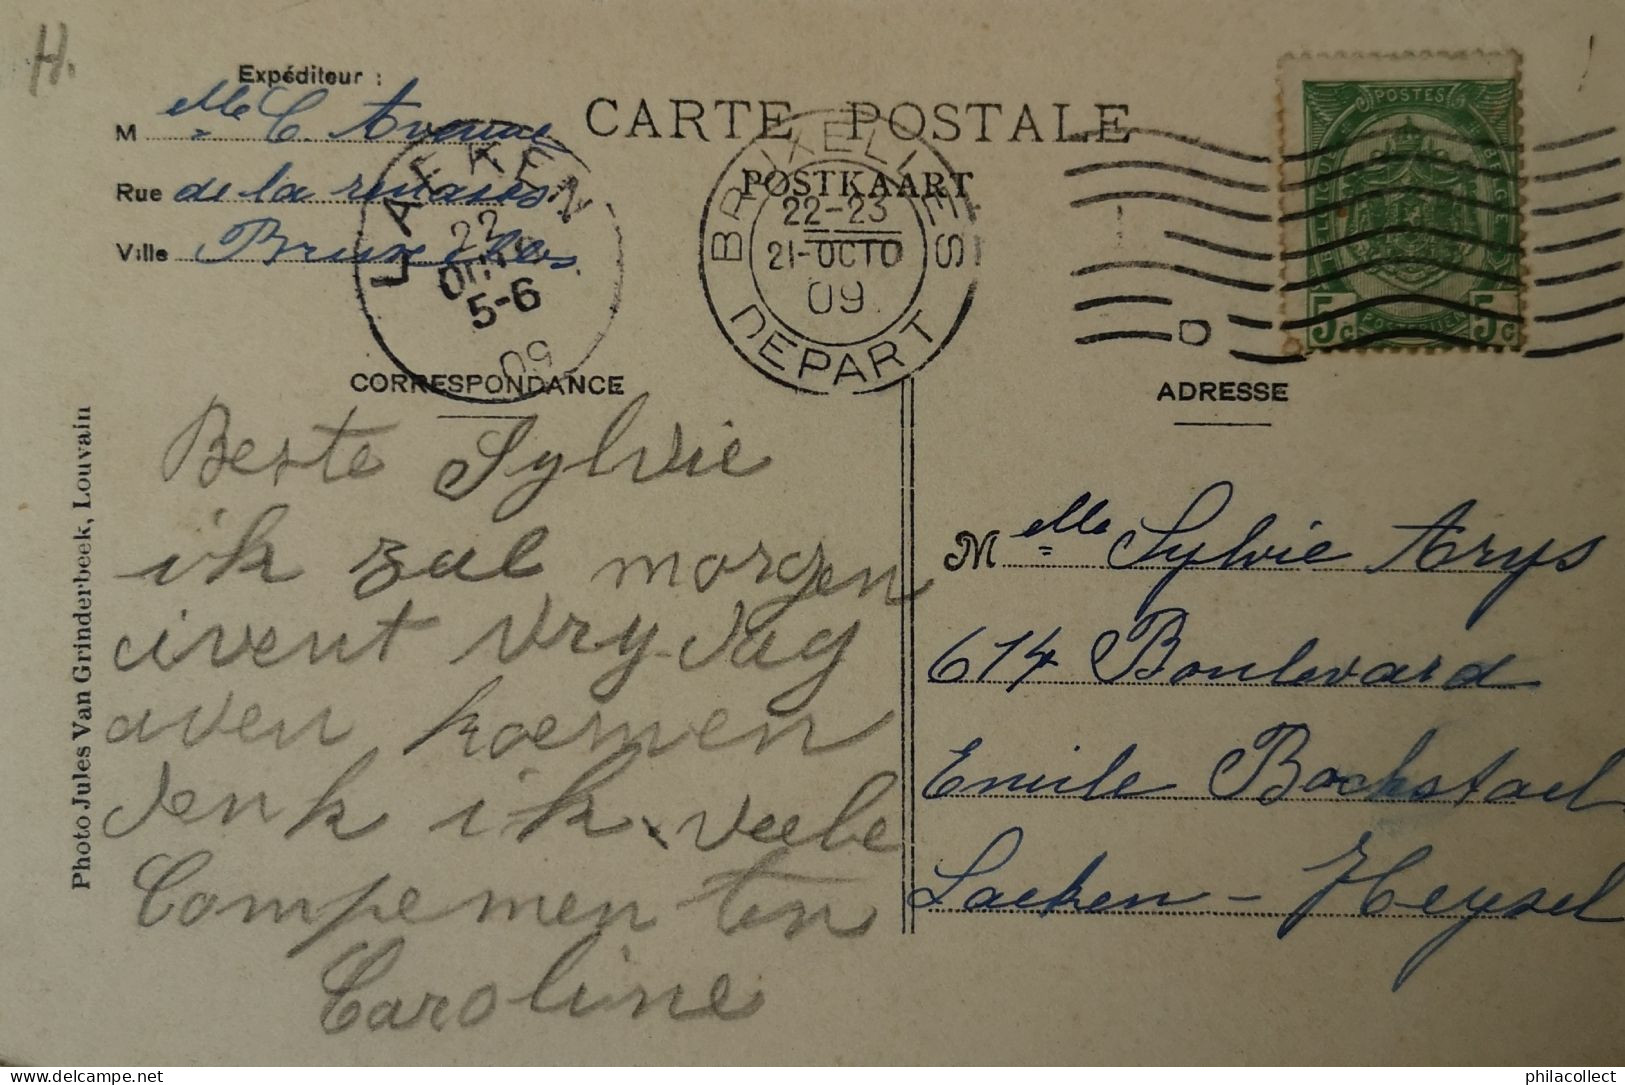 H.
Expéditeur :
M elle C. Avonne
Rue de la
Ville Bruxelles
CARTE POSTALE
POSTKAART
LAEKEN
22
OCTO
5-6
09
BRUXELLES
22-23
21-OCTO
09
DEPART
D
POSTES
BELGIQUE
BELGIË
5c 5c
POSTERIJEN
CORRESPONDANCE
Beste Sylvie
ik zal morgen
avent vry-dag
aven koemen
denk ik veele
Compementen
Caroline
Photo Jules Van Grinderbeek, Louvain
ADRESSE
M elle Sylvie Arys
614 Boulevard
Emile Bockstael
Laeken - Heysel
philacollect